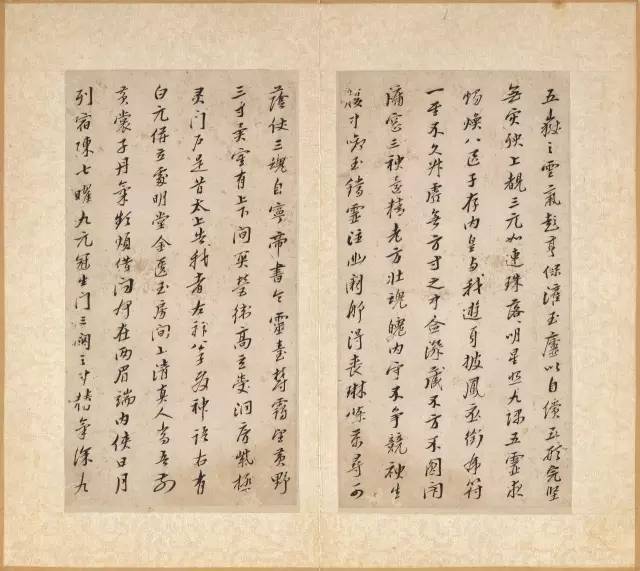 五嶽之雲氣彭亨保灌玉廬以自償五形完堅
無灾殃上覩三元如連珠落明景照九隅五靈夜
燭煥八區子存内皇与我遊身披鳳衣銜虎符
一至不久升虚無方寸之中念深藏不方不圓閉
牖窓三神還精老方壯魂魄内守不争競神生
腹中銜玉鐺靈注幽闕那得喪琳條萬尋可
蔭仗三魂自寧帝書命靈臺欝靄望黄野
三寸異室有上下間関營衛高玄受洞房紫極
灵門户是昔太上告我者左神公子發神語右有
白元併立處明堂金匱玉房間上清真人當吾前
黄裳子丹氣頻煩借問何在兩眉端内俠日月
列宿陳七曜九元冠生門三關之中精氣深九